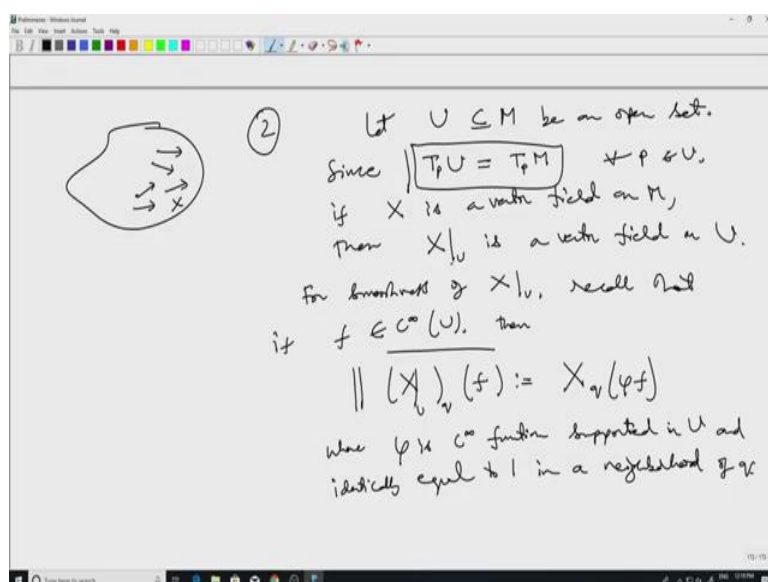 Preliminaries - Windows Journal
File Edit View Insert Actions Tools Help
②
Let U ⊆ M be an open set.
Since T_pU = T_pM ∀ p ∈ U,
if X is a vector field on M,
then X|_U is a vector field on U.
For smoothness of X|_U, recall that
if f ∈ C^∞(U). then
(X|_U)_q (f) := X_q (φf)
where φ is C^∞ function supported in U and
identically equal to 1 in a neighborhood of q
X
Type here to search